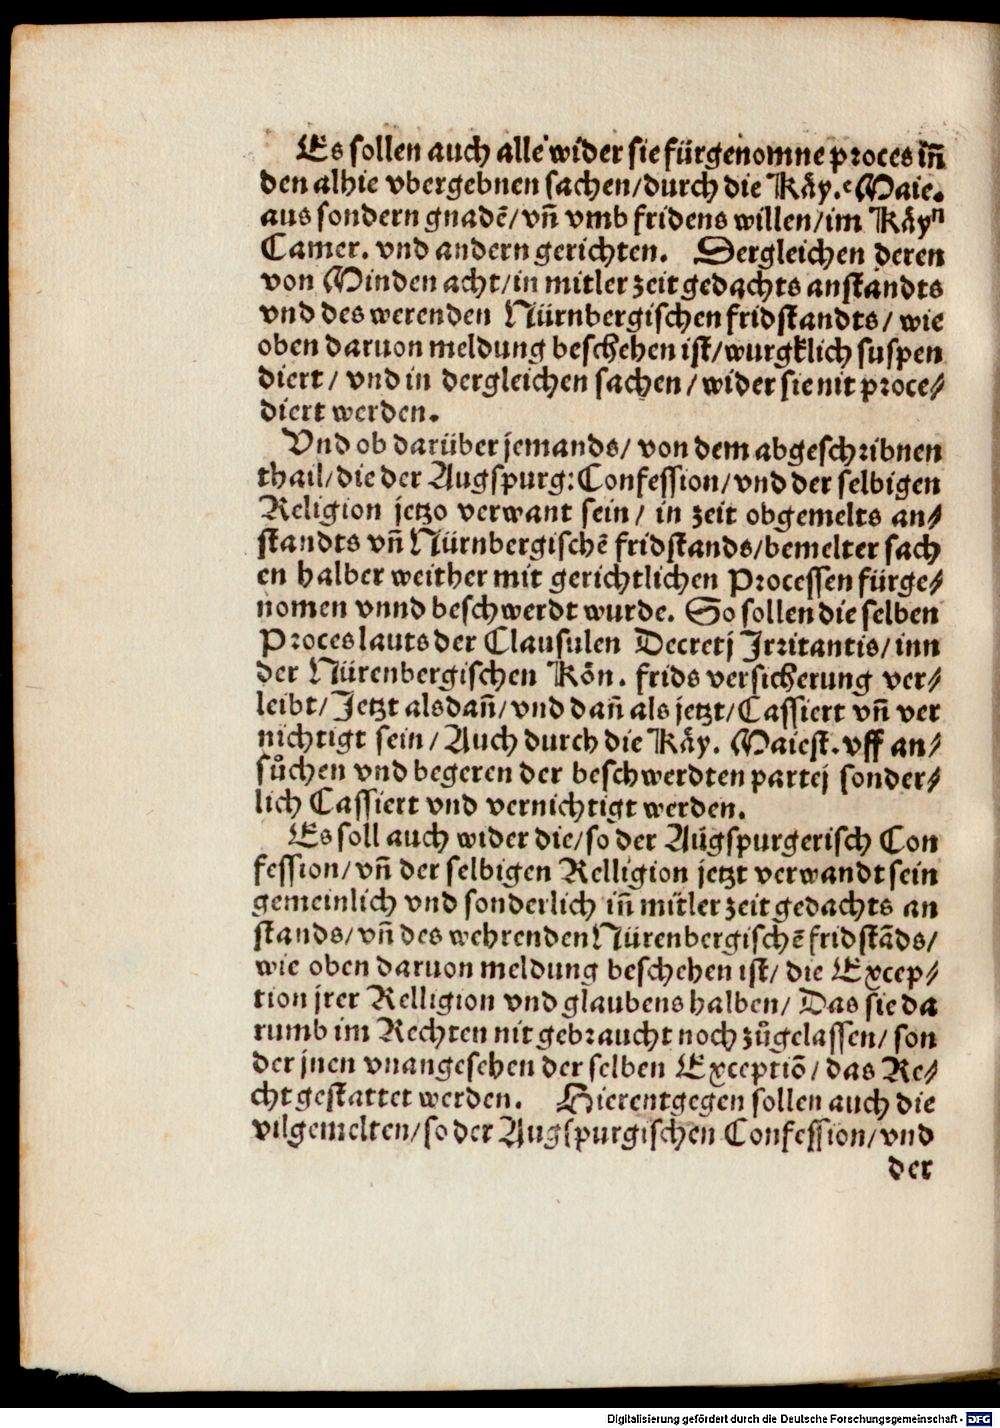 Es sollen auch alle wider sie fürgenomne proces iñ
den alhie vbergebnen sachen/durch die Käy. Maie.
aus sondern gnadē/vñ vmb fridens willen/im Käyⁿ
Camer. vnd andern gerichten. Dergleichen deren
von Minden acht/in mitler zeit gedachts anstandts
vnd des werenden Nürnbergischen fridstandts/ wie
oben daruon meldung beschehen ist/wurgklich suspen
diert/ vnd in dergleichen sachen/wider sie nit proce⸗
diert werden.
Vnd ob darüber jemands/ von dem abgeschribnen
thail/die der Augspurg:Confession/vnd der selbigen
Religion jetzo verwant sein/ in zeit obgemelts an⸗
standts vñ Nürnbergischē fridstands/bemelter sach
en halber weither mit gerichtlichen Processen fürge⸗
nomen vnnd beschwerdt wurde. So sollen die selben
Proces lauts der Clausulen Decretj Irritantis/inn
der Nürenbergischen Kön. frids versicherung ver⸗
leibt/ Jetzt alsdañ/vnd dañ als jetzt/Cassiert vñ ver
nichtigt sein/Auch durch die Käy. Maiest. vff an⸗
sůchen vnd begeren der beschwerdten partej sonder⸗
lich Cassiert vnd vernichtigt werden.
Es soll auch wider die/so der Augspurgerisch Con
fession/vñ der selbigen Relligion jetzt verwandt sein
gemeinlich vnd sonderlich iñ mitler zeit gedachts an
stands/vñ des wehrenden Nürenbergischē fridstāds/
wie oben daruon meldung beschehen ist/ die Excep⸗
tion jrer Relligion vnd glaubens halben/ Das sie da
rumb im Rechten nit gebraucht noch zůgelassen/ son
der jnen vnangesehen der selben Exceptiō/das Re⸗
cht gestattet werden. Hierentgegen sollen auch die
vilgemelten/so der Augspurgischen Confession/vnd
der
Digitalisierung gefördert durch die Deutsche Forschungsgemeinschaft - DFG